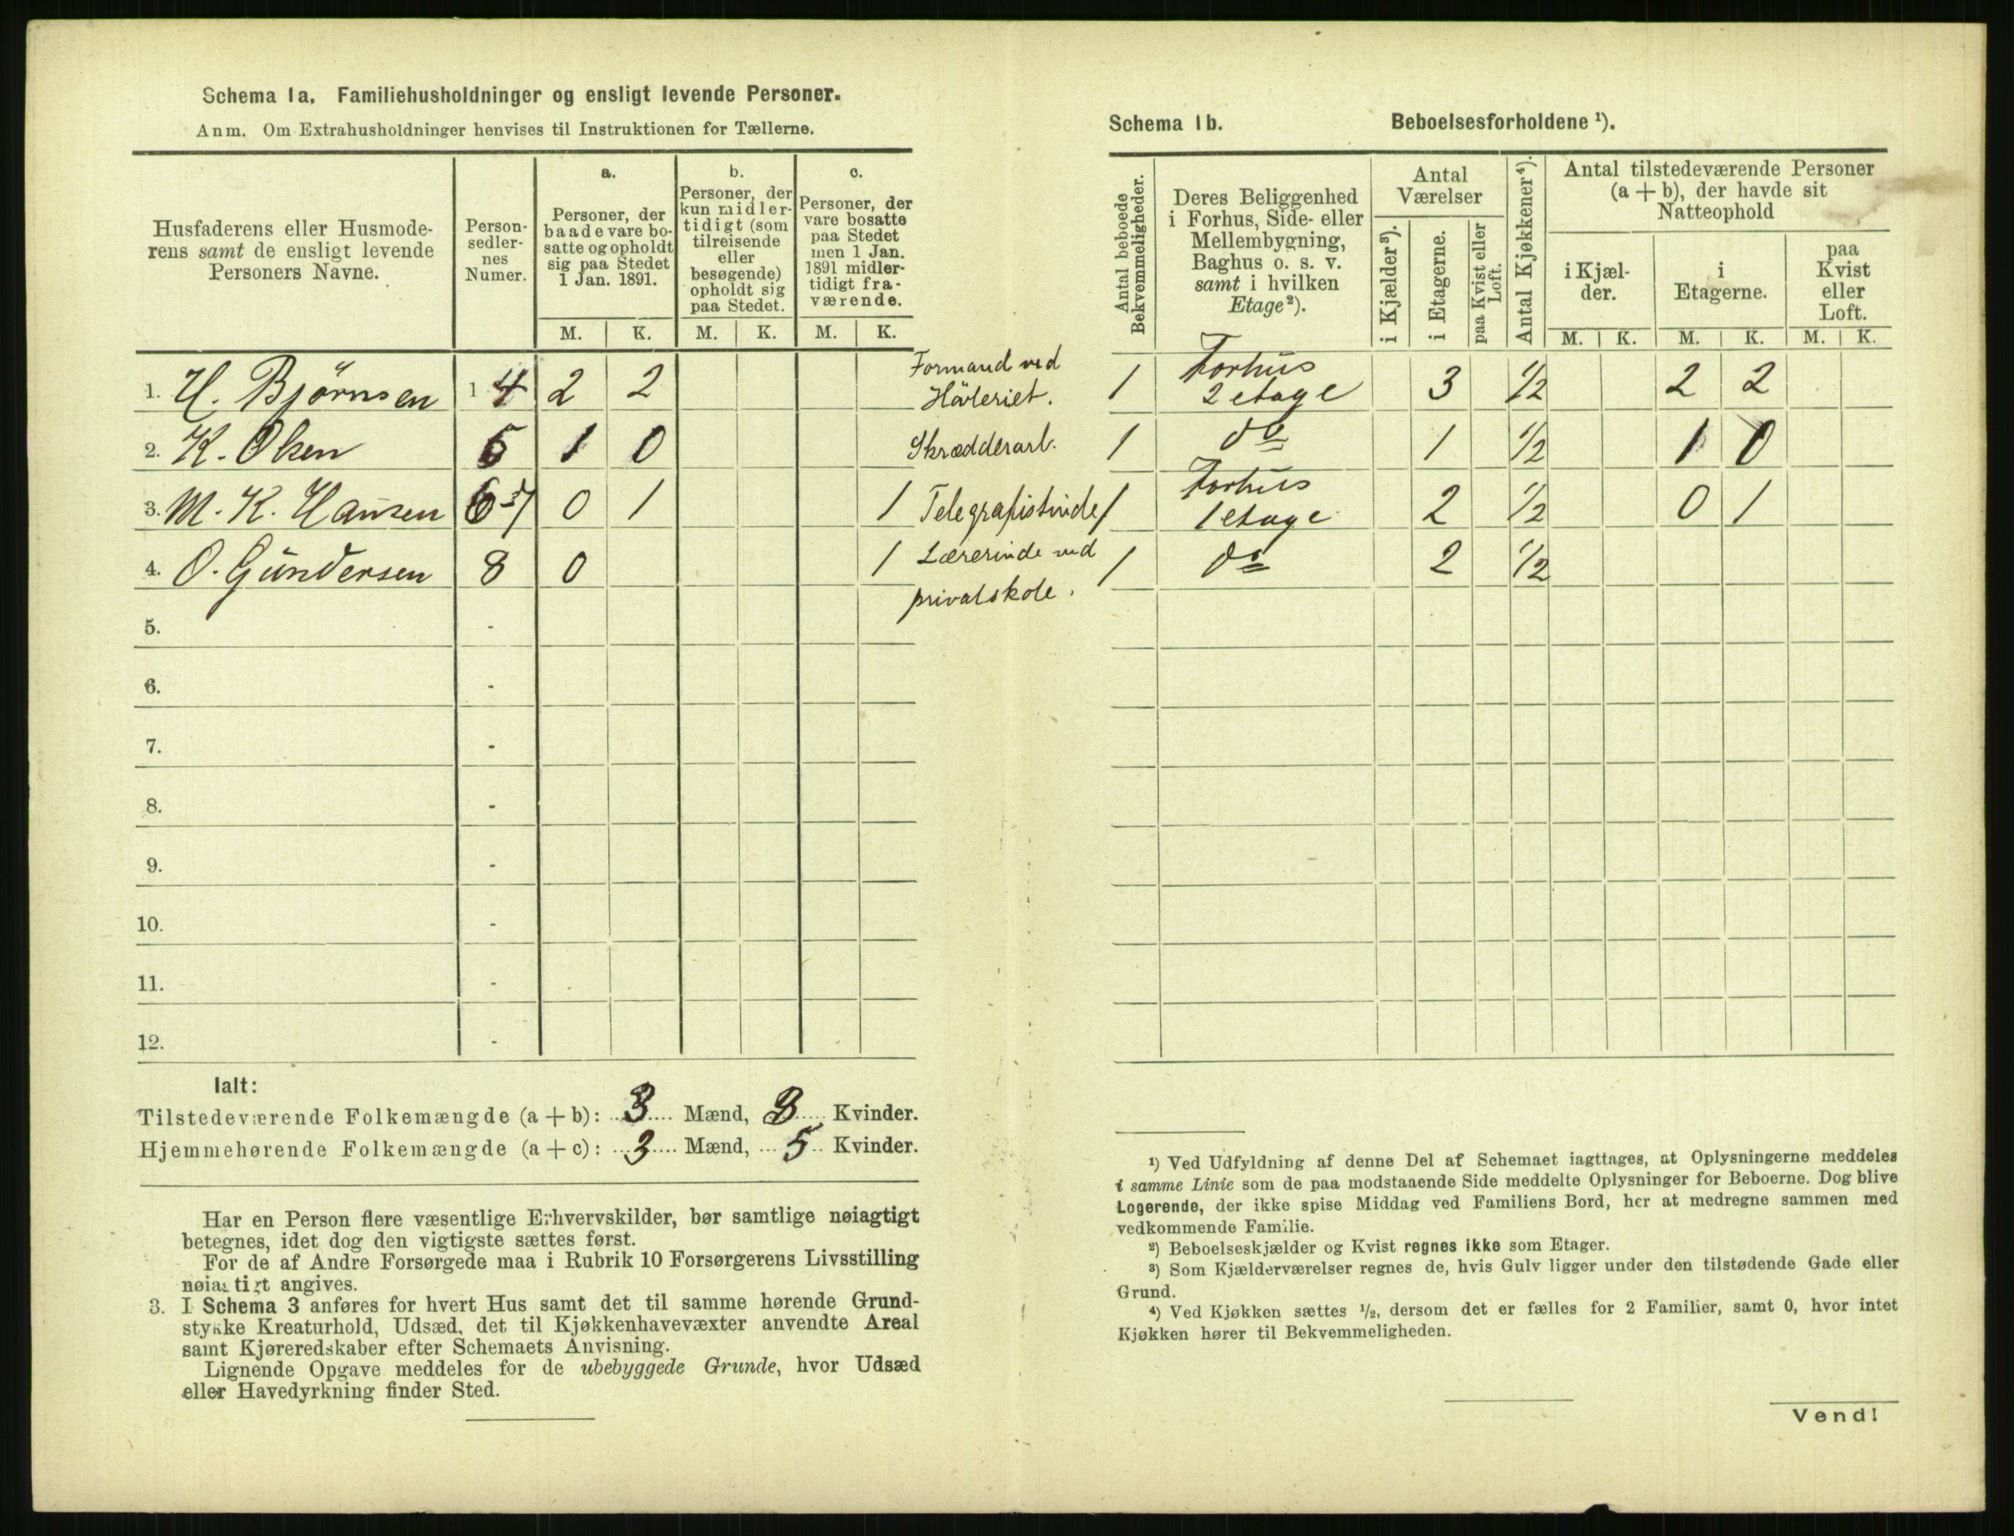 Schema 1a. Familiehusholdninger og ensligt levende Personer.
Anm. Om Extrahusholdninger henvises til Instruktionen for Tællerne.
Husfaderens eller Husmode-
rens samt de ensligt levende
Personers Navne.
Person-
sedler-
nes
Numer.
a.
Personer, der
baade vare bo-
satte og opholdt
sig paa Stedet
1 Jan. 1891.
b.
Personer, der
kun midler-
tidigt (som
tilreisende
eller
besøgende)
opholdt sig
paa Stedet.
c.
Personer, der
vare bosatte
paa Stedet
men 1 Jan.
1891 midler-
tidigt fra-
værende.
M. K. M. K. M. K.
1. H. Bjørnsen 1 4 2 2 Formand ved
Høvleriet.
2. K. Olsen 5 1 0 Skrædderarb.
3. M. K. Hansen 6 7 0 1 1 Telegrafistinde
4. O. Gundersen 8 0 1 Lærerinde ved
privatskole.
5. -
6. -
7. -
8. -
9. -
10. -
11. -
12. -
Ialt:
Tilstedeværende Folkemængde (a + b): 3 Mænd, 3 Kvinder.
Hjemmehørende Folkemængde (a + c): 3 Mænd, 5 Kvinder.
Har en Person flere væsentlige Erhvervskilder, bør samtlige nøiagtigt
betegnes, idet dog den vigtigste sættes først.
For de af Andre Forsørgede maa i Rubrik 10 Forsørgerens Livsstilling
nøiagtigt angives.
3. I Schema 3 anføres for hvert Hus samt det til samme hørende Grund-
stykke Kreaturhold, Udsæd, det til Kjøkkenhavevæxter anvendte Areal
samt Kjøreredskaber efter Schemaets Anvisning.
Lignende Opgave meddeles for de ubebyggede Grunde, hvor Udsæd
eller Havedyrkning finder Sted.
Schema 1b. Beboelsesforholdene ¹).
Antal beboede
Bekvemmeligheder.
Deres Beliggenhed
i Forhus, Side- eller
Mellembygning,
Baghus o. s. v.
samt i hvilken
Etage²).
Antal
Værelser
i Kjælder³).
i Etagerne.
paa Kvist eller
Loft.
Antal Kjøkkener⁴).
Antal tilstedeværende Personer
(a + b), der havde sit
Natteophold
i Kjæl-
der.
i
Etagerne.
paa
Kvist
eller
Loft.
M. K. M. K. M. K.
1 Forhus
2 etage 3 ½ 2 2
1 do 1 ½ 1 0
1 Forhus
1 etage 2 ½ 0 1
1 do 2 ½
¹) Ved Udfyldning af denne Del af Schemaet iagttages, at Oplysningerne meddeles
i samme Linie som de paa modstaaende Side meddelte Oplysninger for Beboerne. Dog blive
Logerende, der ikke spise Middag ved Familiens Bord, her at medregne sammen med
vedkommende Familie.
²) Beboelseskjælder og Kvist regnes ikke som Etager.
³) Som Kjælderværelser regnes de, hvis Gulv ligger under den tilstødende Gade eller
Grund.
⁴) Ved Kjøkken sættes ½, dersom det er fælles for 2 Familier, samt 0, hvor intet
Kjøkken hører til Bekvemmeligheden.
Vend!